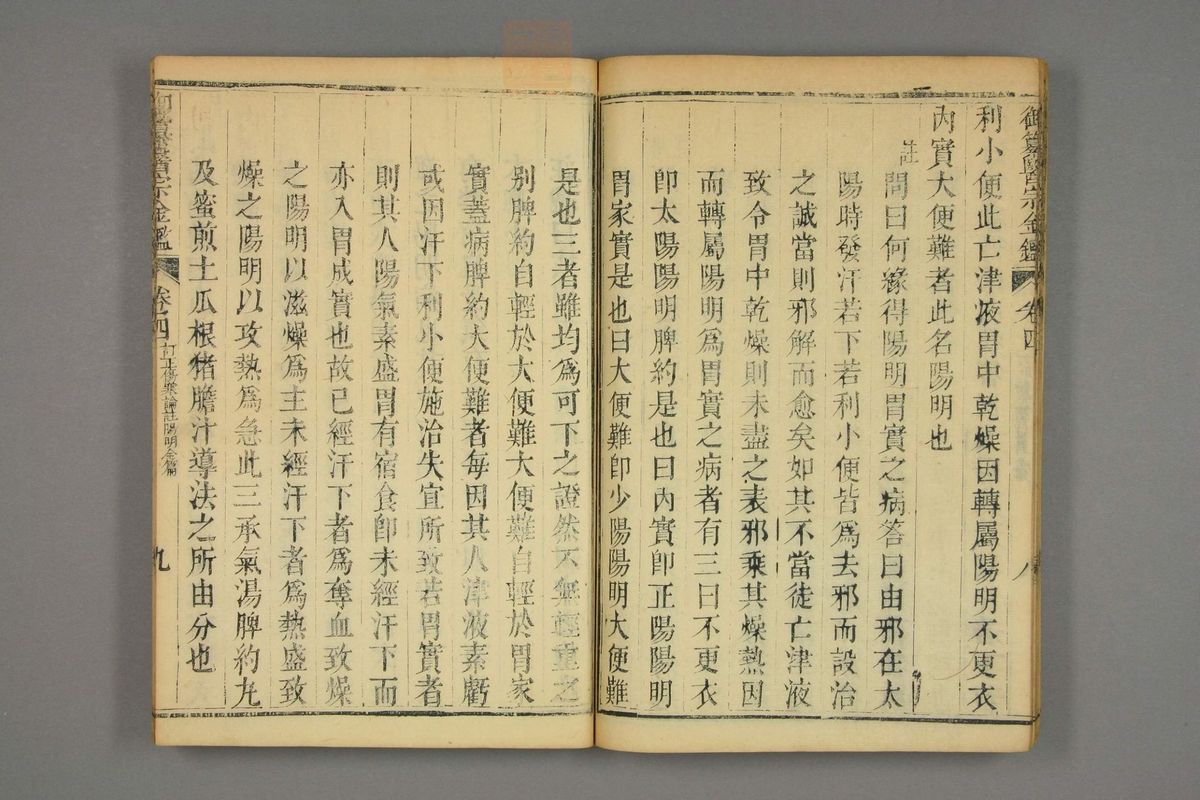 御纂醫宗金鑑 卷四 八
利小便此亡津液胃中乾燥因轉屬陽明不更衣
內實大便難者此名陽明也
註
問曰何緣得陽明胃實之病答曰由邪在太
陽時發汗若下若利小便皆為去邪而設治
之誠當則邪解而愈矣如其不當徒亡津液
致令胃中乾燥則未盡之表邪乘其燥熱因
而轉屬陽明為胃實之病者有三曰不更衣
卽太陽陽明脾約是也曰內實卽正陽陽明
胃家實是也曰大便難卽少陽陽明大便難
是也三者雖均為可下之證然不無輕重之
別脾約自輕於大便難大便難自輕於胃家
實蓋病脾約大便難者每因其人津液素虧
或因汗下利小便施治失宜所致若胃實者
則其人陽氣素盛胃有宿食卽未經汗下而
亦入胃成實也故已經汗下者為奪血致燥
之陽明以滋燥為主未經汗下者為熱盛致
燥之陽明以攻熱為急此三承氣湯脾約丸
及蜜煎土瓜根猪膽汁導法之所由分也
御纂醫宗金鑑 卷四 訂正傷寒論註陽明全篇 九